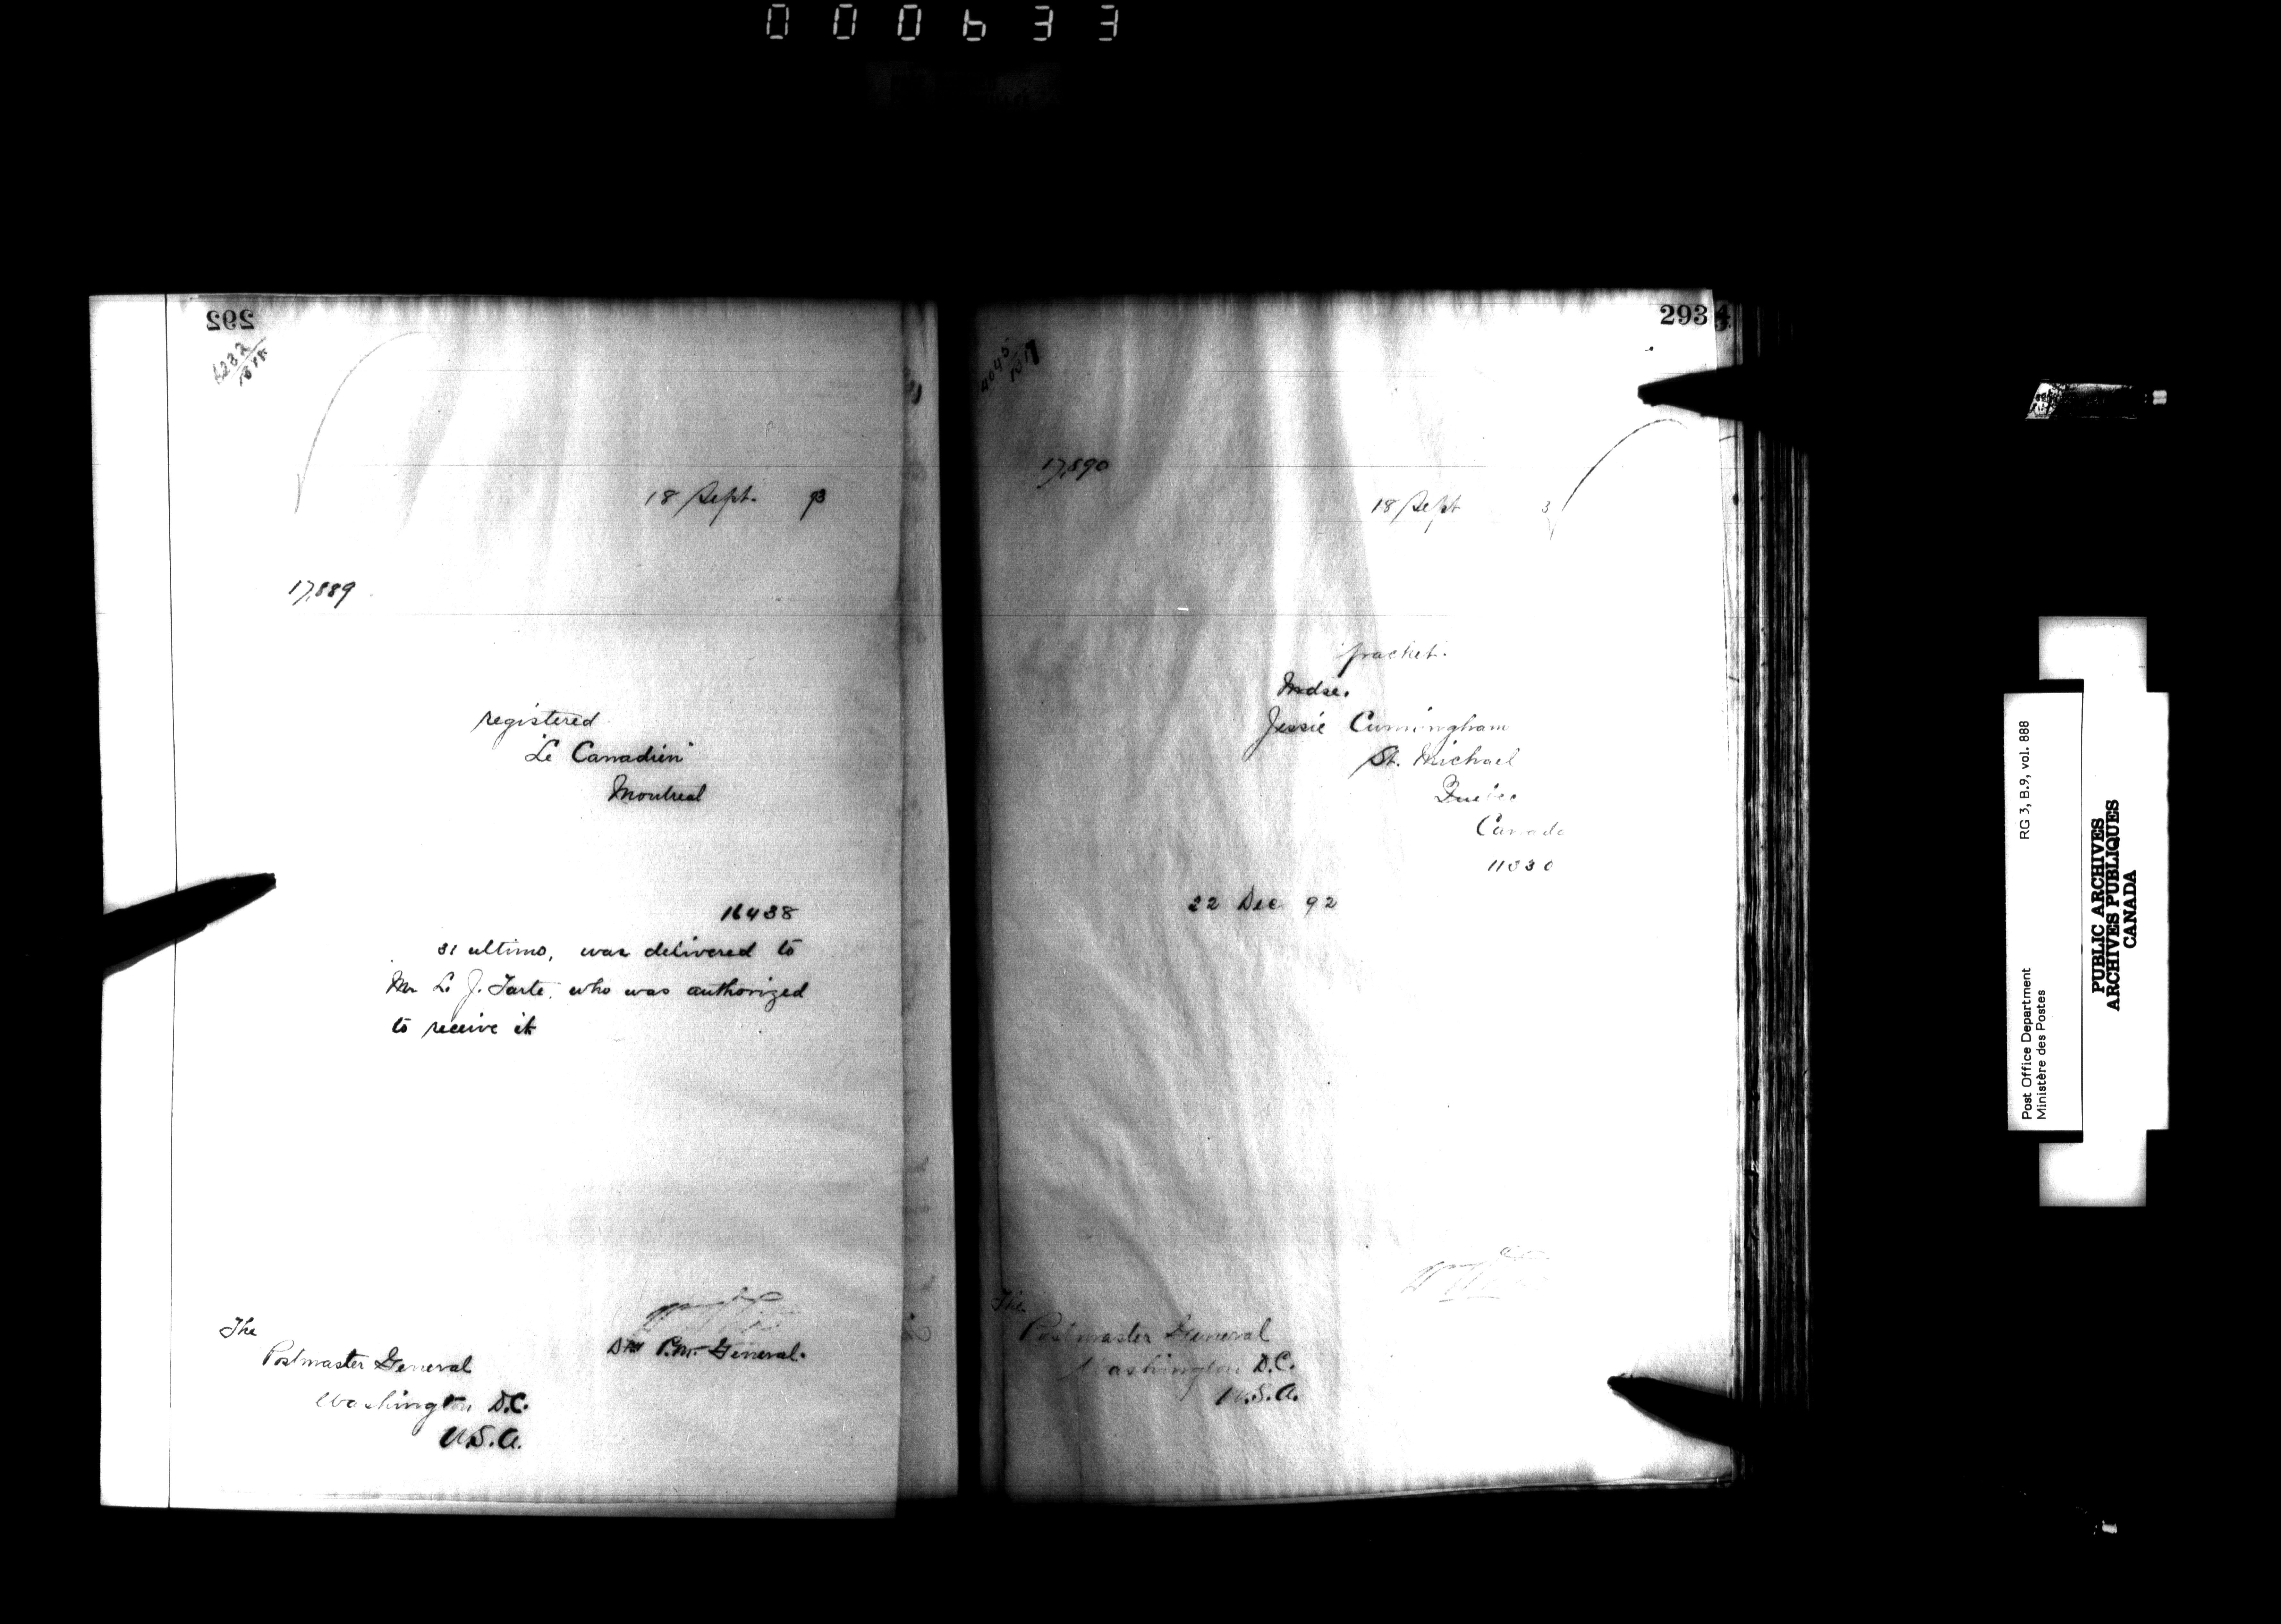 000633
292
18 Sept. 93
17,889
registered
"Le Canadien"
Montreal
16438
31 ultimo, was delivered to
Mr L. J. Tarte, who was authorized
to receive it
P.M. General.
The
Postmaster General
Washington D.C.
U.S.A.
293
17,890
18 Sept 3
packet.
Mdse.
Jessie Cunningham
St. Michael
Quebec
Canada
22 Dec 92
The
Postmaster General
Washington D.C.
U.S.A.
Post Office Department RG 3, B.9, vol. 888
Ministère des Postes
PUBLIC ARCHIVES
ARCHIVES PUBLIQUES
CANADA